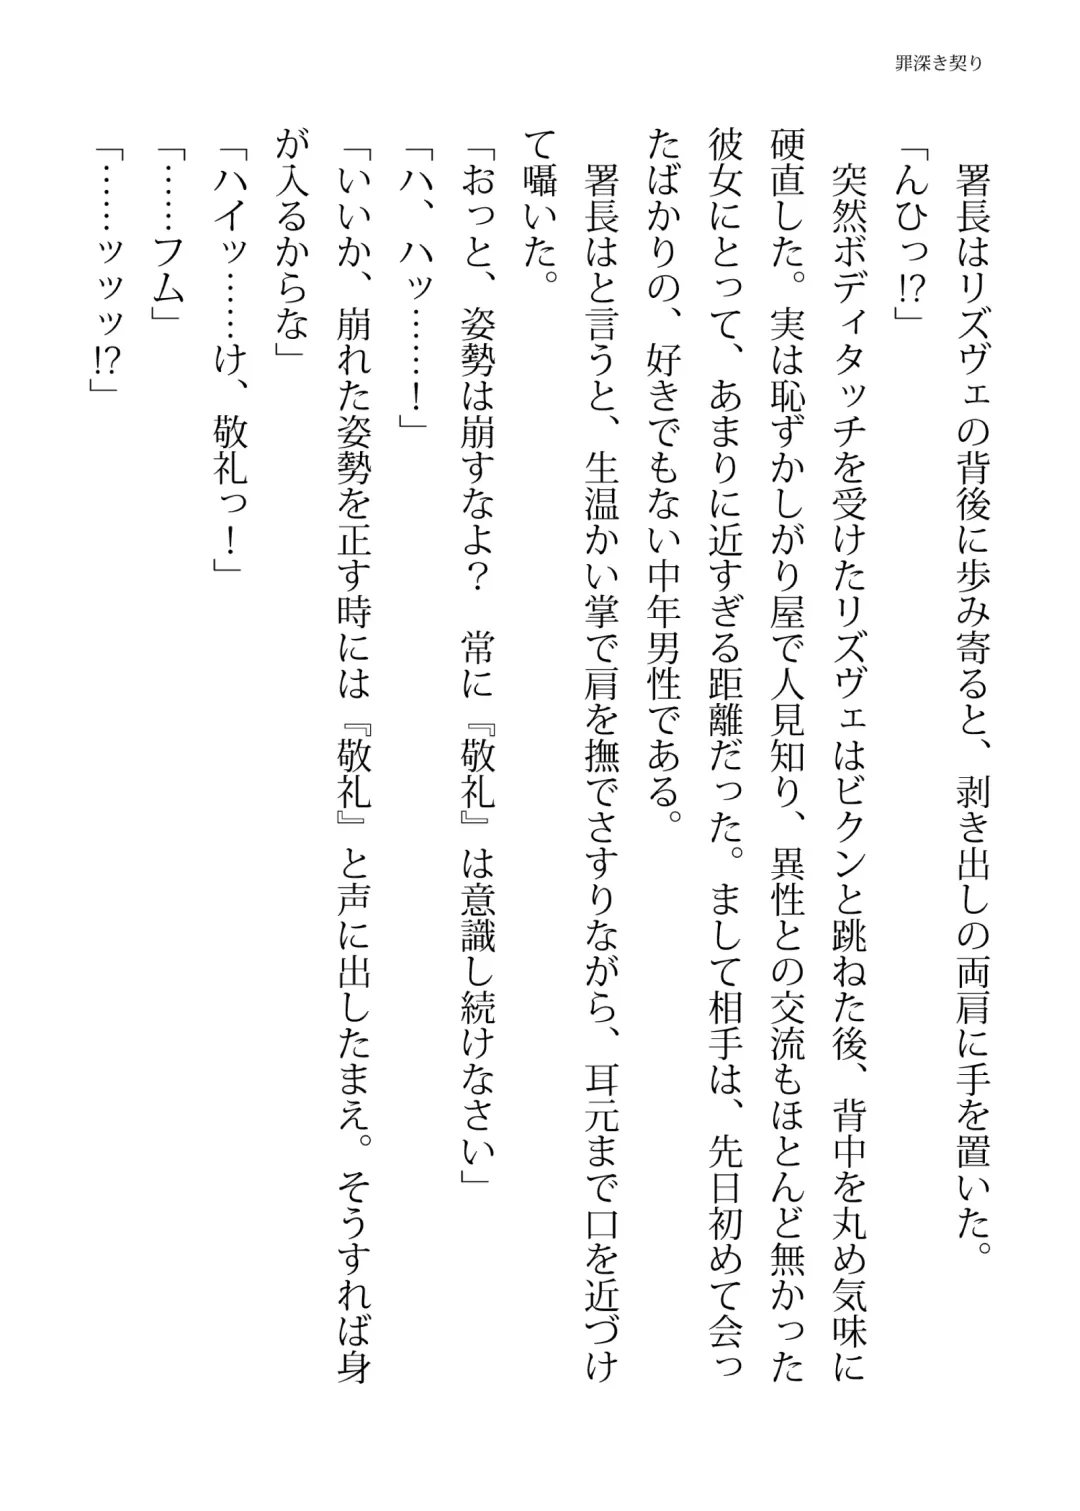 罪深き契り
　署長はリズヴェの背後に歩み寄ると、剥き出しの両肩に手を置いた。
「んひっ!?」
　突然ボディタッチを受けたリズヴェはビクンと跳ねた後、背中を丸め気味に
硬直した。実は恥ずかしがり屋で人見知り、異性との交流もほとんど無かった
彼女にとって、あまりに近すぎる距離だった。まして相手は、先日初めて会っ
たばかりの、好きでもない中年男性である。
　署長はと言うと、生温かい掌で肩を撫でさすりながら、耳元まで口を近づけ
て囁いた。
「おっと、姿勢は崩すなよ？　常に『敬礼』は意識し続けなさい」
「ハ、ハッ……！」
「いいか、崩れた姿勢を正す時には『敬礼』と声に出したまえ。そうすれば身
が入るからな」
「ハイッ……け、敬礼っ！」
「……フム」
「……ッッッ!?」